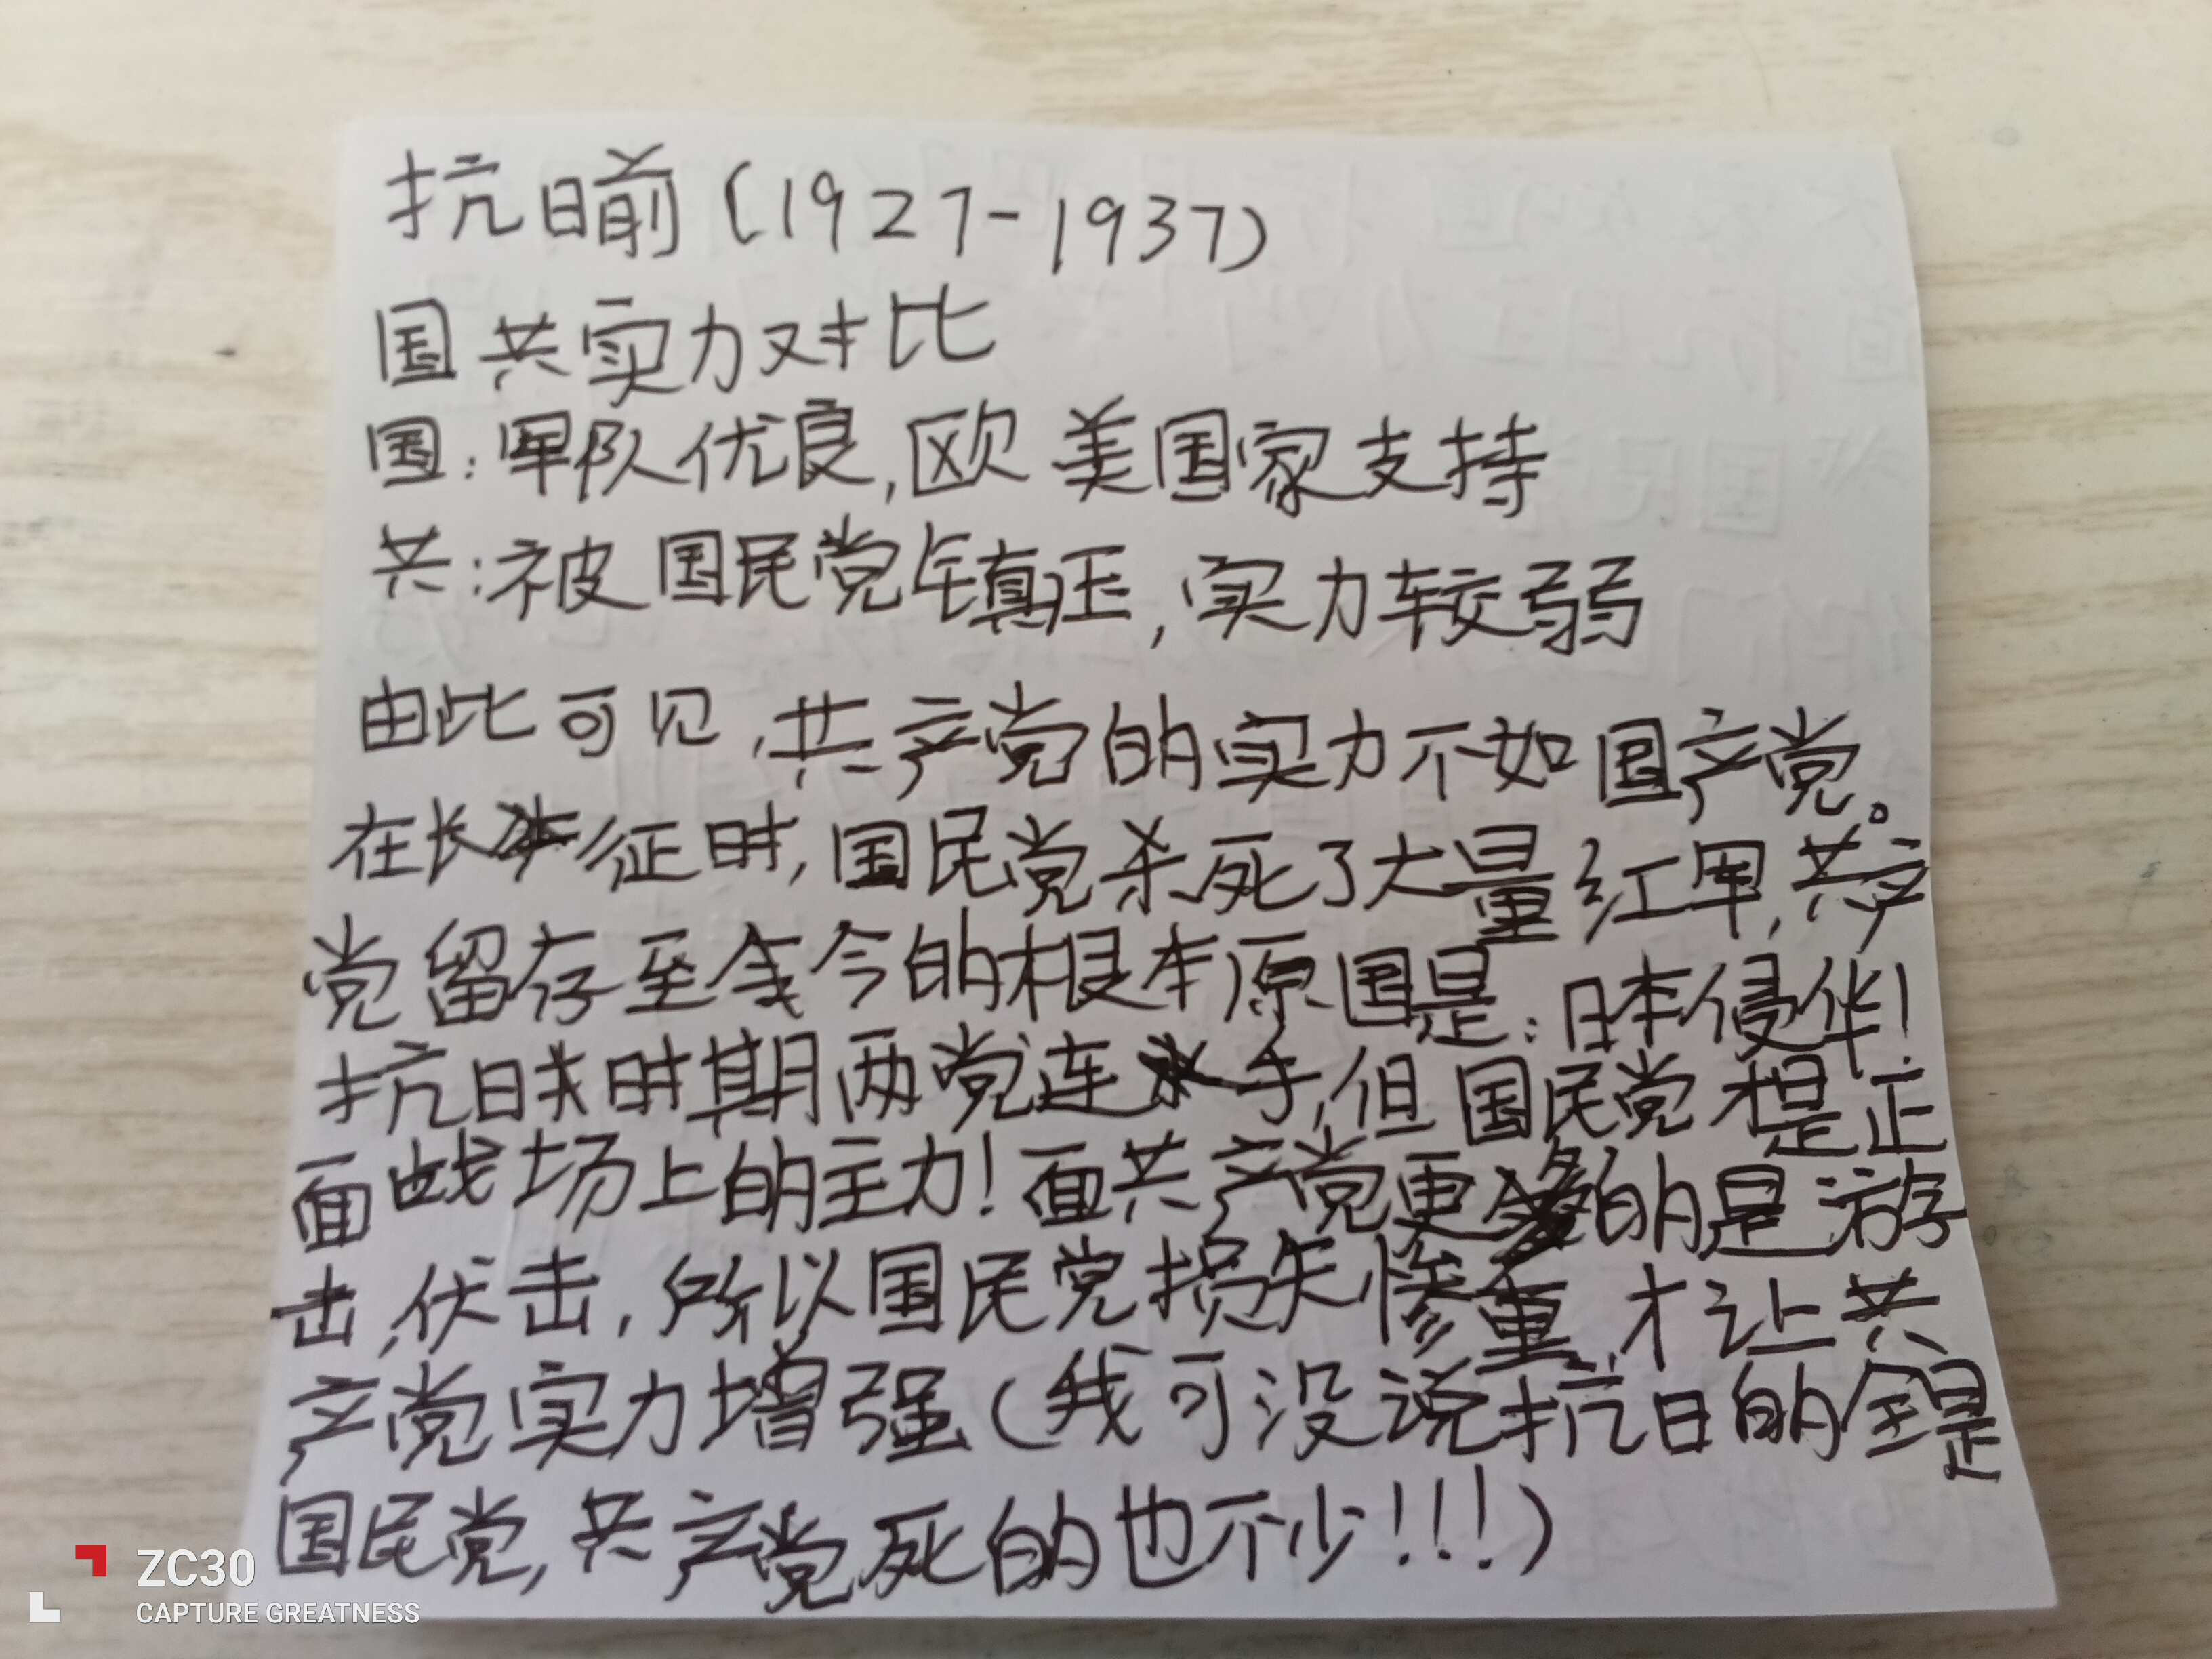 抗日前(1927-1937)
国共实力对比
国:军队优良,欧美国家支持
共:被国民党镇压,实力较弱
由此可见,共产党的实力不如国产党。
在长征时,国民党杀死了大量红军,共产
党留存至今的根本原因是:日本侵华!
抗日时期两党连手,但国民党才是正
面战场上的主力!面共产党更多的是游
击,伏击,所以国民党损失惨重,才让共
产党实力增强(我可没说抗日的全是
国民党,共产党死的也不少!!!)
ZC30
CAPTURE GREATNESS